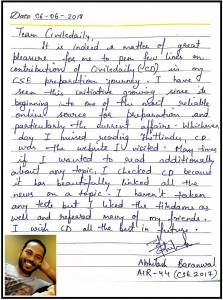 Date 06-06-2018
Team Civilsdaily,
It is indeed a matter of great
pleasure for me to pen few lines on
contribution of Civilsdaily (CD) in my
CSE preparation journey. I have
seen this initiative growing since its
beginning into one of the most reliable
online source for preparation and
particularly the current affairs. Whichever
day I missed reading TheHindu, CD
was the website I visited. Many times
if I wanted to read additionally
about any topic, I checked CD because
it has beautifully linked all the
news on a topic. I haven't taken
any tests but I liked the
well and referred many of my friends.
I wish CD all the best in future.
Abhilash Baranwal
AIR-44 (CSE 2017)